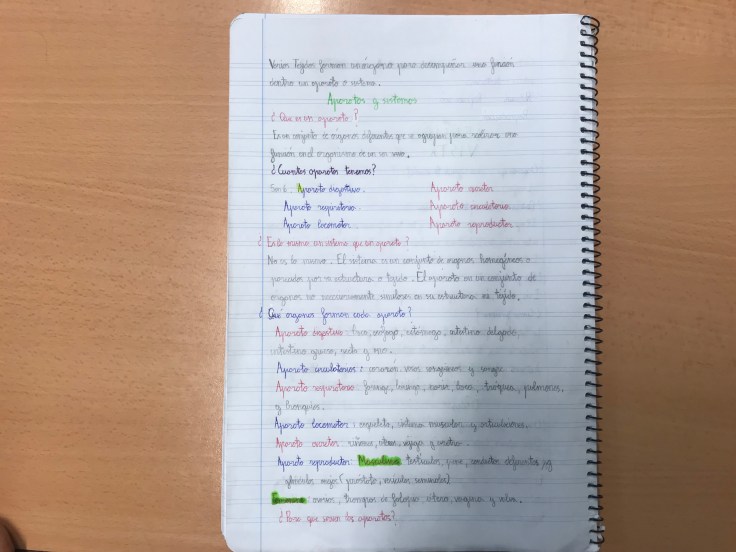 Varios Tejidos forman un órgano para desempeñar una función
dentro un aparato o sistema.
Aparatos y sistemas
¿Que es un aparato?
Es un conjunto de órganos diferentes que se agrupan para realizar una
función en el organismo de un ser vivo.
¿Cuantos aparatos tenemos?
Son 6. Aparato digestivo. Aparato excretor
Aparato respiratorio. Aparato circulatorio.
Aparato locomotor. Aparato reproductor.
¿Es lo mismo un sistema que un aparato?
No es lo mismo. El sistema es un conjunto de órganos homogéneos o
parecidos por su estructura o tejido. El aparato es un conjunto de
órganos no necesariamente similares en su estructura ni tejido.
¿Qué órganos forman cada aparato?
Aparato digestivo: boca, esófago, estómago, intestino delgado,
intestino grueso, recto y ano.
Aparato circulatorios: corazón, vasos sanguíneos y sangre.
Aparato respiratorio: faringe, laringe, nariz, boca, tráquea, pulmones
y bronquios.
Aparato locomotor: esqueleto, sistema muscular y articulaciones.
Aparato excretor: riñones, vejiga y uretra.
Aparato reproductor: Masculino testículos, pene, conductos deferentes y
glándulas (próstata, vesículas seminales)
Femenino: ovarios, trompas de falopio, útero, vagina y vulva.
¿Para que sirven los aparatos?